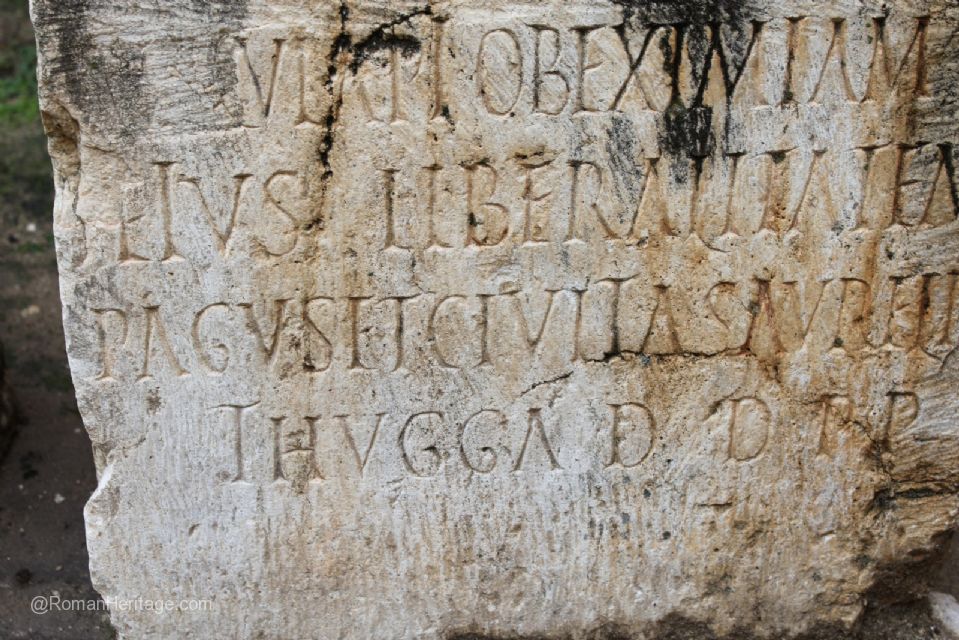 OB EXIMIAM
EIVS LIBERALITATEM
PAGVS ET CIVITAS AVRELI
THVGGA D D P P
@RomanHeritage.com